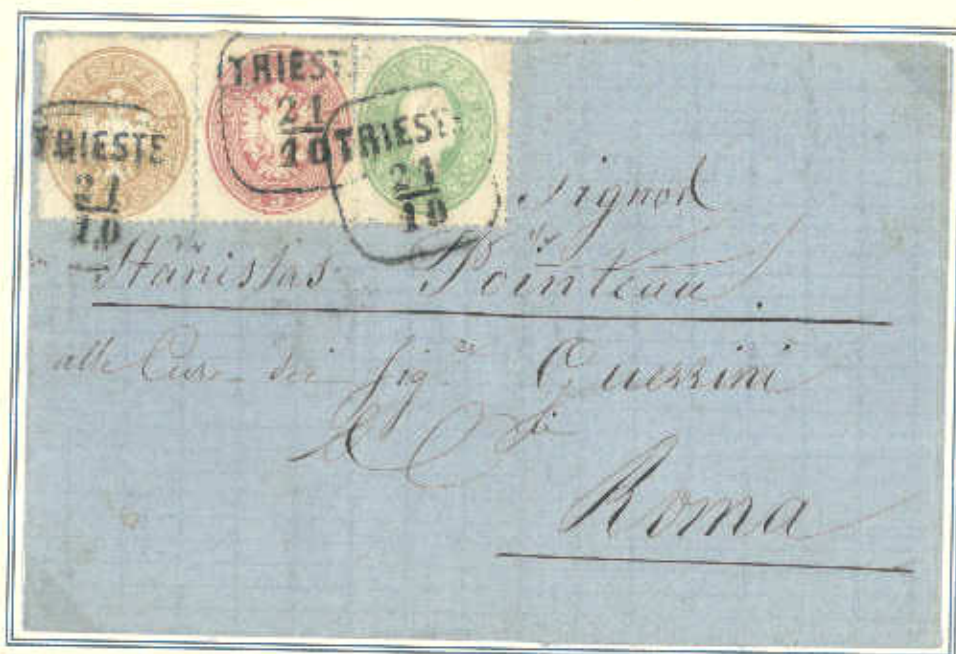 TRIESTE
21
10
TRIEST
21
10
TRIESTE
21
10
Signor
Stanislas Pointeau.
alle Cure dei Sig.ri Guerrini
& C.
Roma